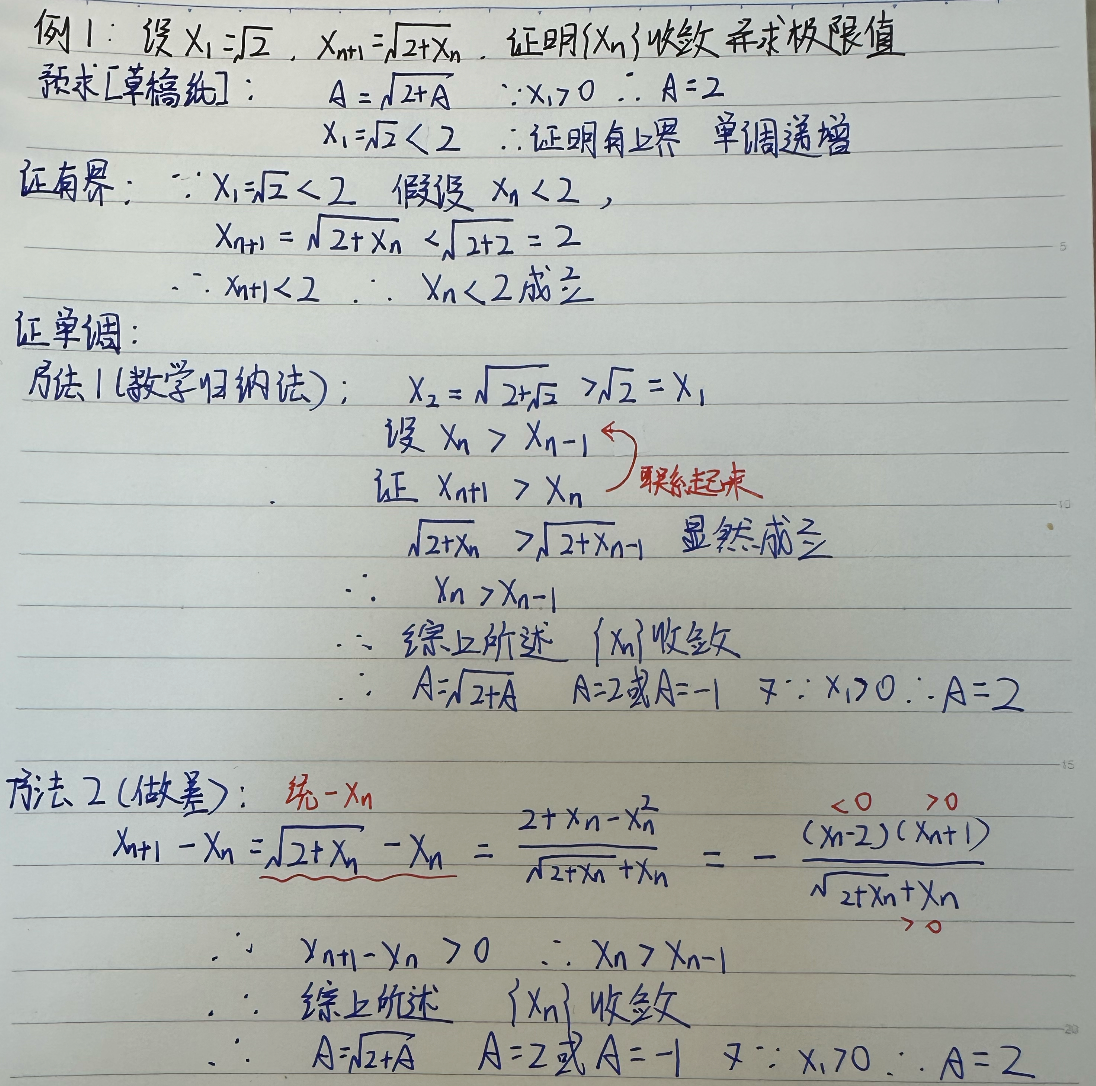 例1：设 X₁=√2，Xₙ₊₁=√(2+Xₙ)．证明{Xₙ}收敛并求极限值
预求[草稿纸]： A=√(2+A) ∵X₁>0 ∴A=2
X₁=√2<2 ∴证明有上界 单调递增
证有界：∵X₁=√2<2 假设 Xₙ<2，
Xₙ₊₁=√(2+Xₙ)<√(2+2)=2
∴Xₙ₊₁<2 ∴Xₙ<2成立
证单调：
方法1(数学归纳法)： X₂=√(2+√2)>√2=X₁
设 Xₙ>Xₙ₋₁
证 Xₙ₊₁>Xₙ 联系起来
√(2+Xₙ)>√(2+Xₙ₋₁) 显然成立
∴ Xₙ>Xₙ₋₁
∴ 综上所述 {Xₙ}收敛
∴ A=√(2+A) A=2或A=-1 又∵X₁>0∴A=2
方法2(做差)： 统一Xₙ
<0 >0
Xₙ₊₁-Xₙ=√(2+Xₙ)-Xₙ=(2+Xₙ-Xₙ²)/(√(2+Xₙ)+Xₙ)=-(Xₙ-2)(Xₙ+1)/(√(2+Xₙ)+Xₙ)
>0
∴ Xₙ₊₁-Xₙ>0 ∴Xₙ>Xₙ₋₁
∴ 综上所述 {Xₙ}收敛
∴ A=√(2+A) A=2或A=-1 又∵X₁>0∴A=2
5
10
15
20